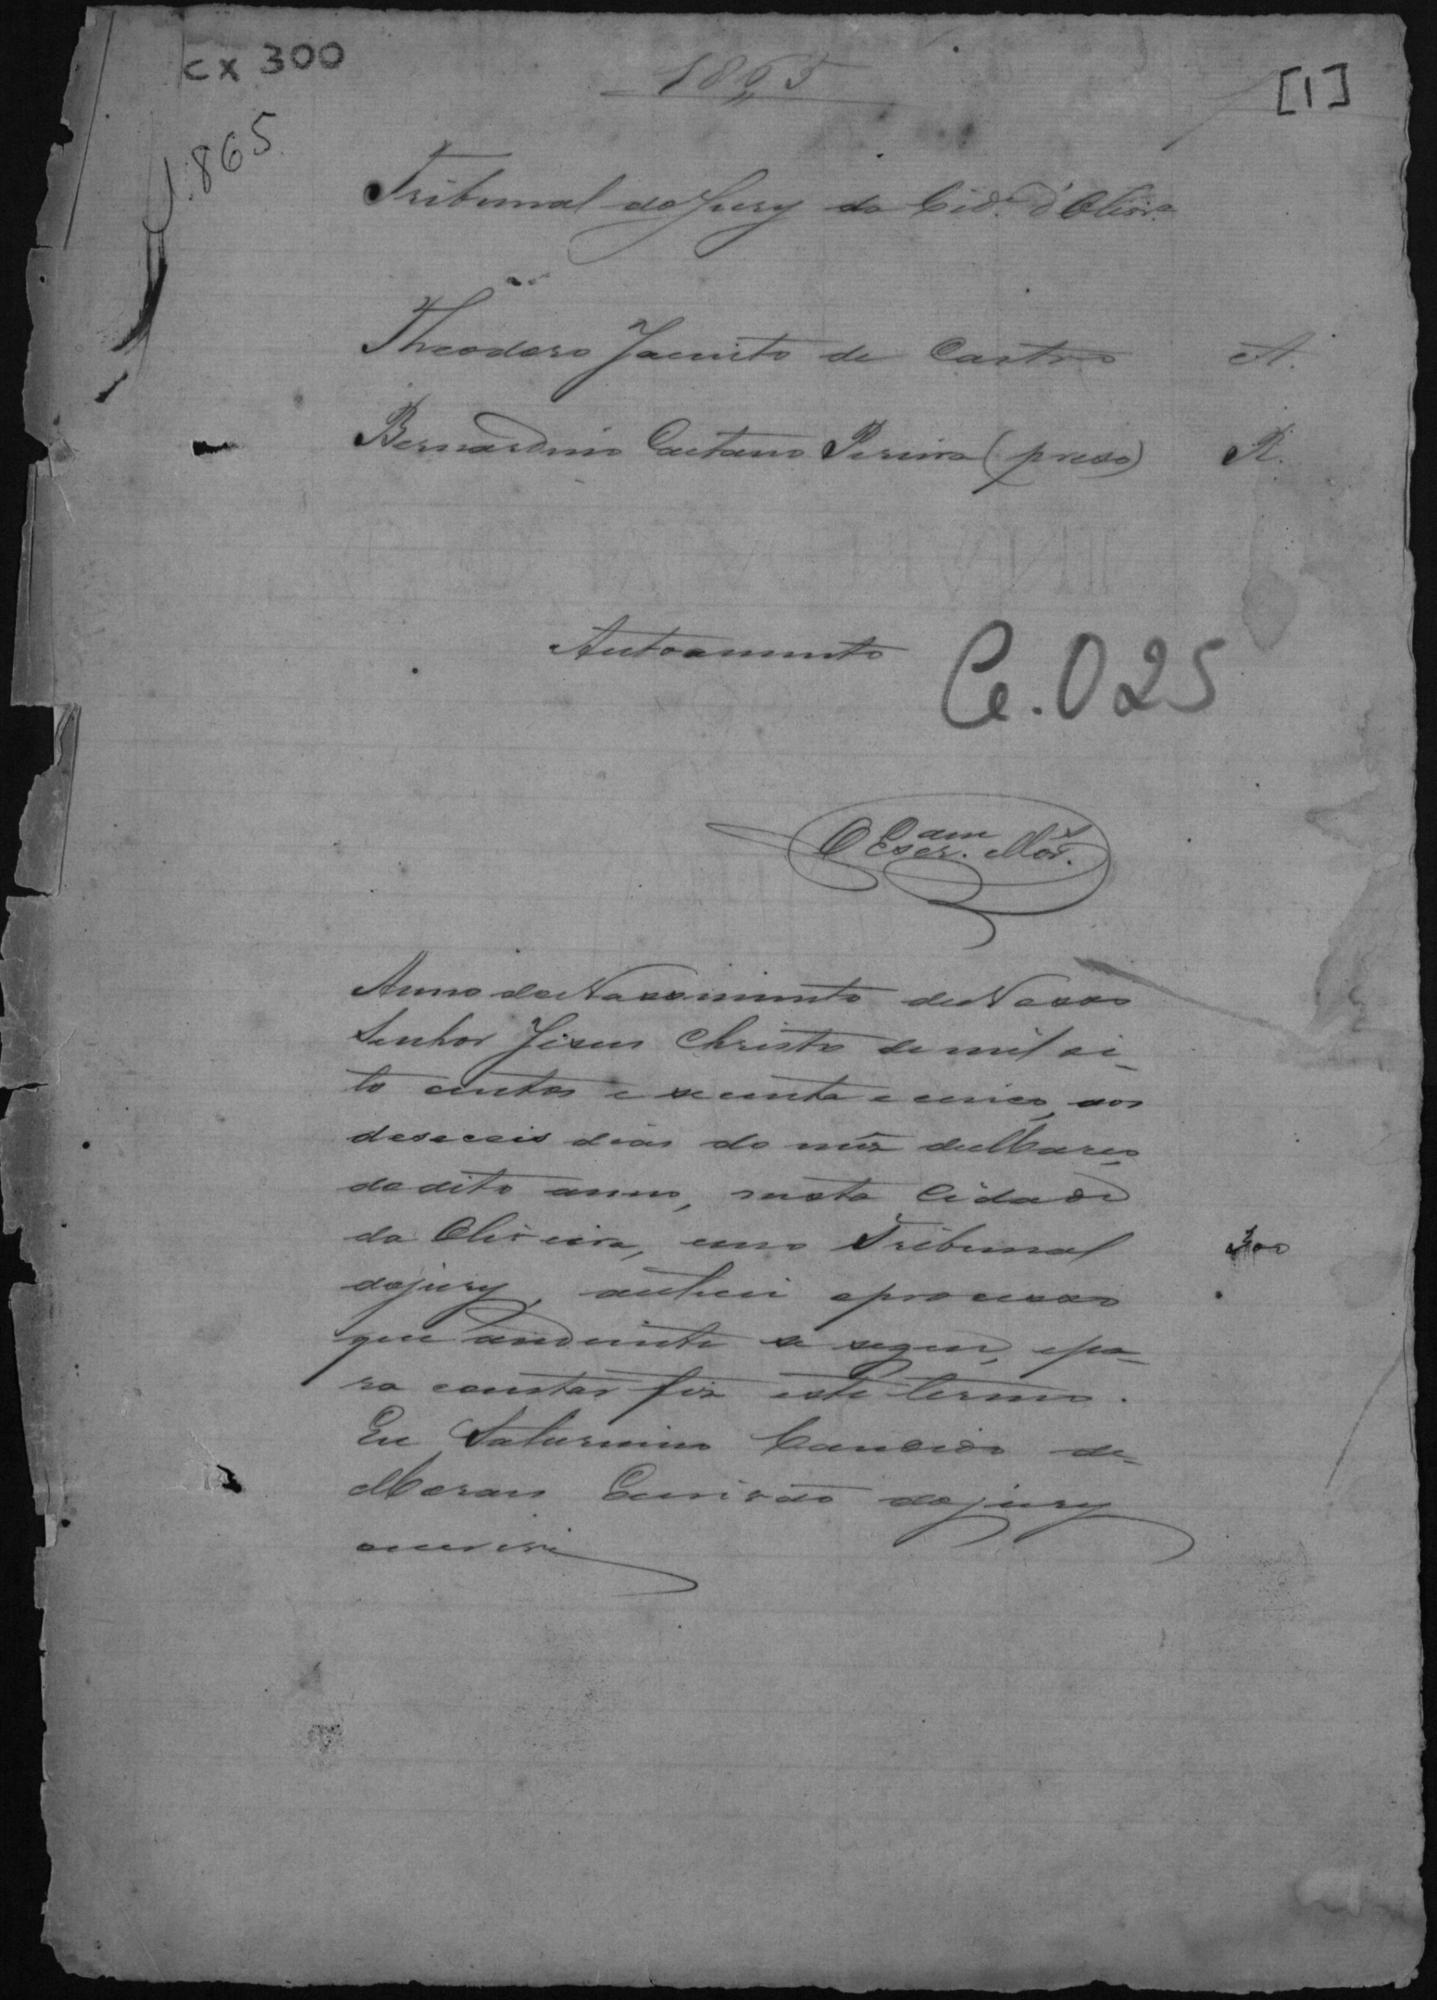 CX 300
1865
[1]
1865
Tribunal do Jury da Cid.e d'Olivr.a
Theodoro Jacinto de Castro A.
Bernardino Caetano Pereira (preso) R.
Autoamento
Ce.025
O Escr.am Mor.s
Anno do Nascimento de Nosso
Senhor Jesus Christo de mil oi-
to centos e secenta e cinco, aos
deseceis dias do mez de Março
do dito anno, nesta Cidade
da Oliveira, e no Tribunal
300
do jury, autuei o processo
que andiente se segue, e pa-
ra constar fiz este termo.
Eu Saturnino Candido de
Moraes Escrivão do jury
o escrivi